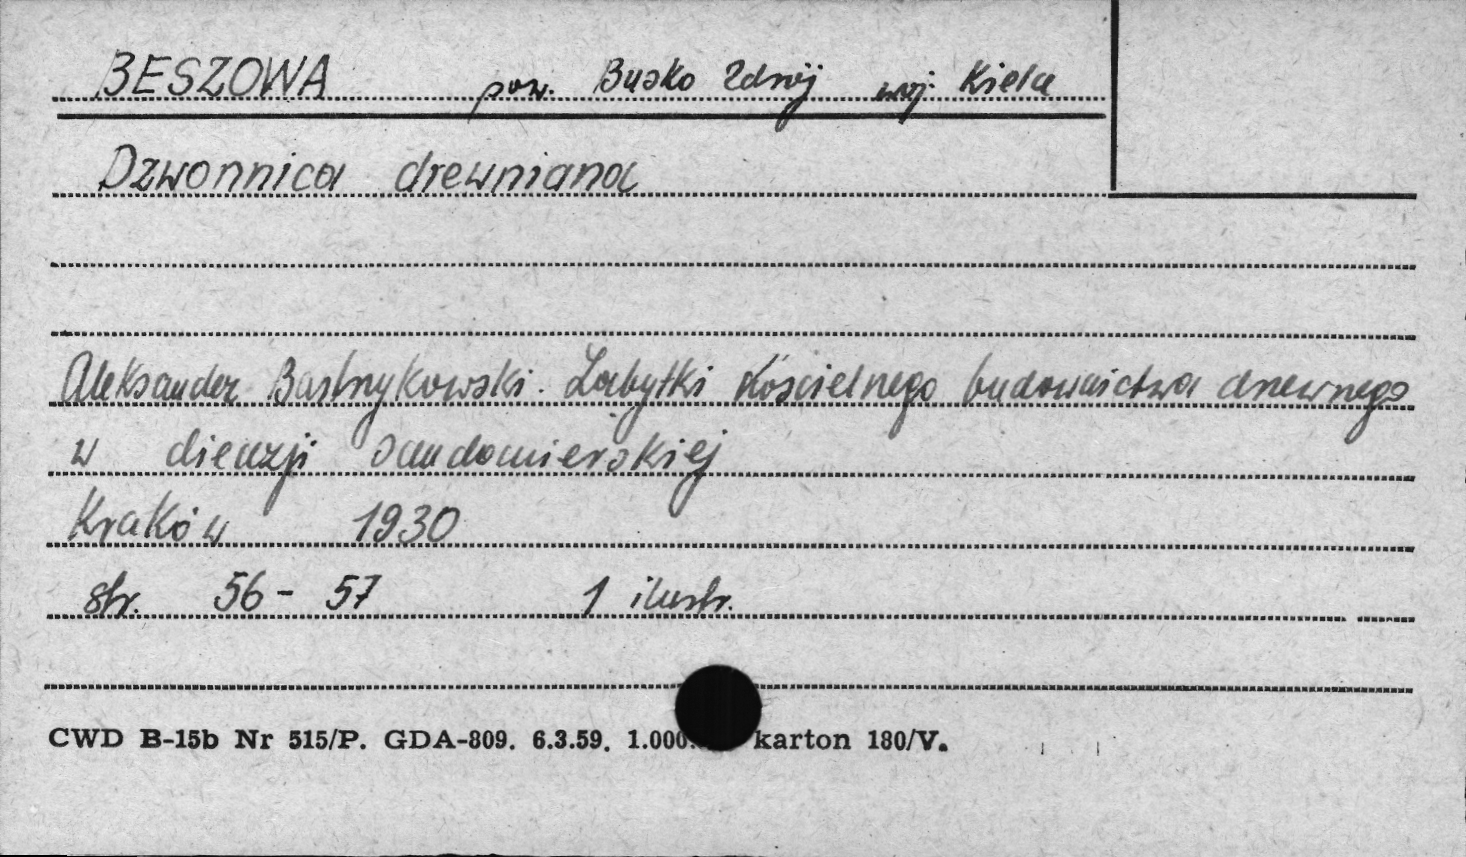 BESZOWA pow. Busko Zdrój woj. Kielce
Dzwonnica drewniana
Aleksander Bastrzykowski. Zabytki kościelnego budownictwa drewnego
w diecezji sandomierskiej
Kraków 1930
str. 56 - 57 1 ilustr.
CWD B-15b Nr 515/P. GDA-809. 6.3.59. 1.000. karton 180/V.